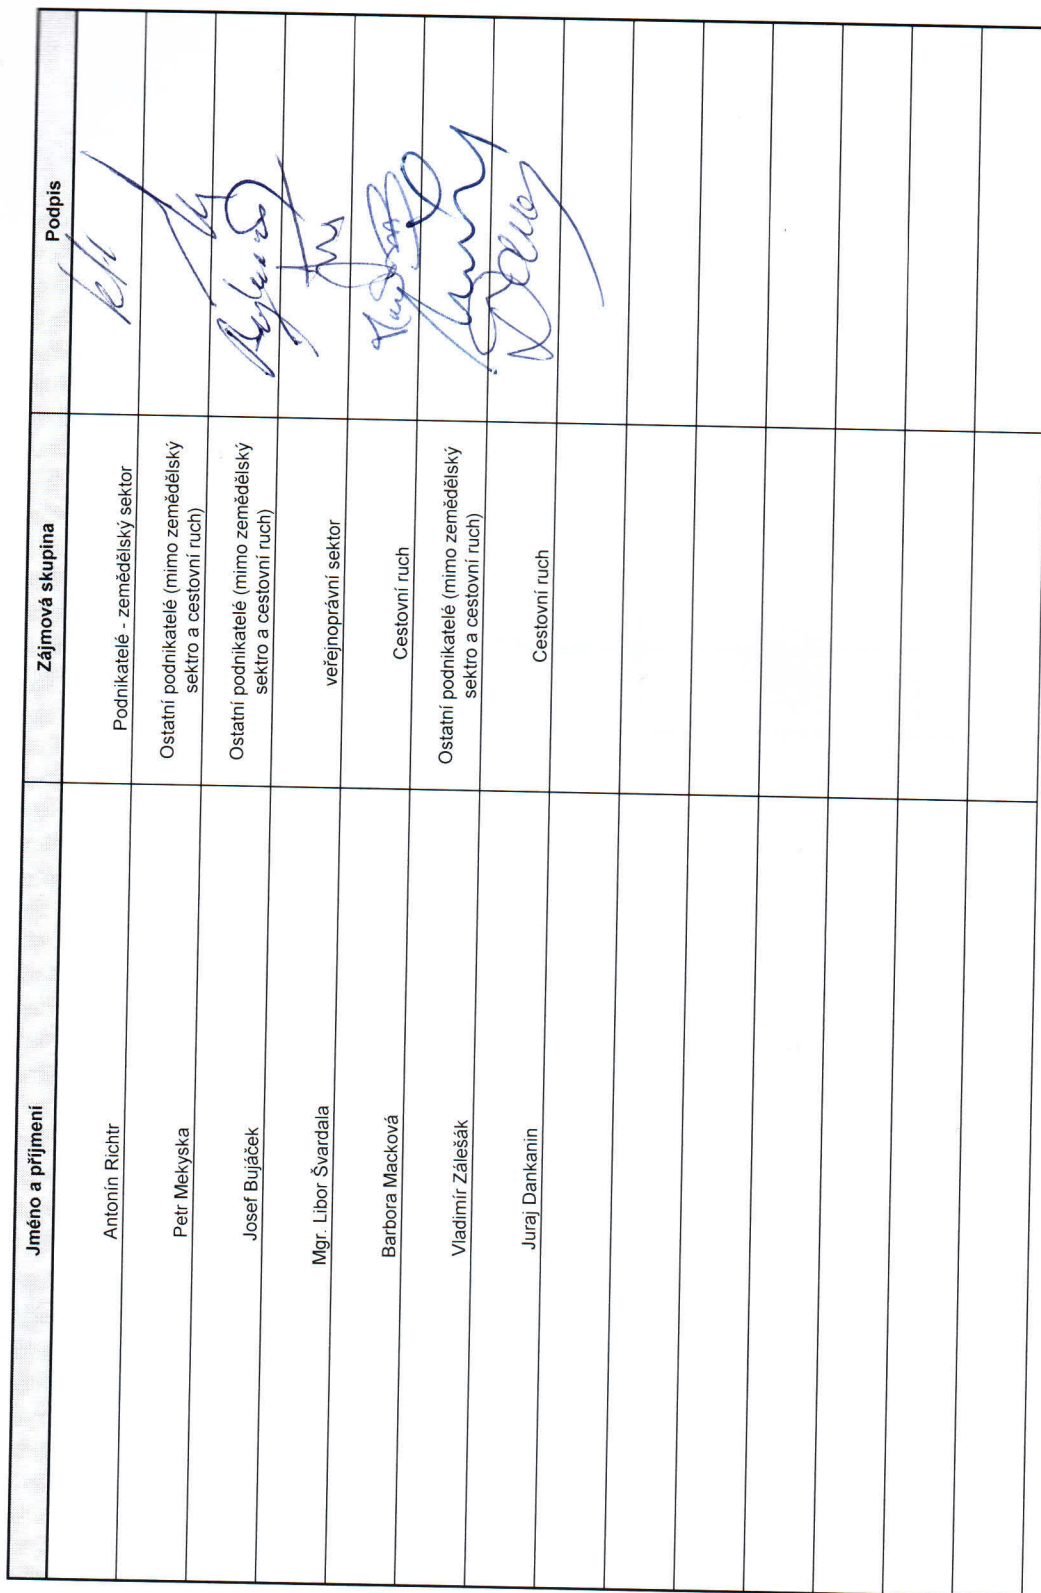 Jméno a příjmení Zájmová skupina Podpis
Antonín Richtr Podnikatelé - zemědělský sektor
Petr Mekyska Ostatní podnikatelé (mimo zemědělský
sektro a cestovní ruch)
Josef Bujáček Ostatní podnikatelé (mimo zemědělský
sektro a cestovní ruch)
Mgr. Libor Švardala veřejnoprávní sektor
Barbora Macková Cestovní ruch
Vladimír Zálešák Ostatní podnikatelé (mimo zemědělský
sektro a cestovní ruch)
Juraj Dankanin Cestovní ruch